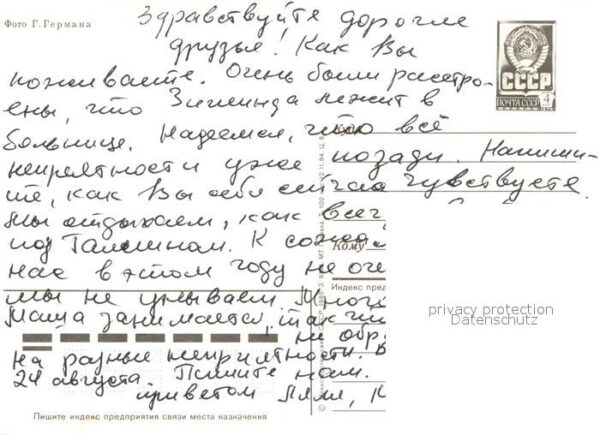 Фото Г. Германа
Здравствуйте дорогие
друзья! Как Вы
поживаете. Очень были расстро-
ены, что Зиглинда лежит в
больнице. Надеемся, что всё
неприятности уже позади. Напиши-
те, как Вы себя сейчас чувствуете.
Мы отдыхаем, как всег
под Таллином. К сожа
нас в этом году не оче
мы не унываем. Много
Маша занимается, так что
не обр
на разные неприятности. В
24 августа. Пишите нам.
приветом Ляля, К
СССР
ПОЧТА СССР
4
Кому
Индекс пред
privacy protection
Datenschutz
Пишите индекс предприятия связи места назначения